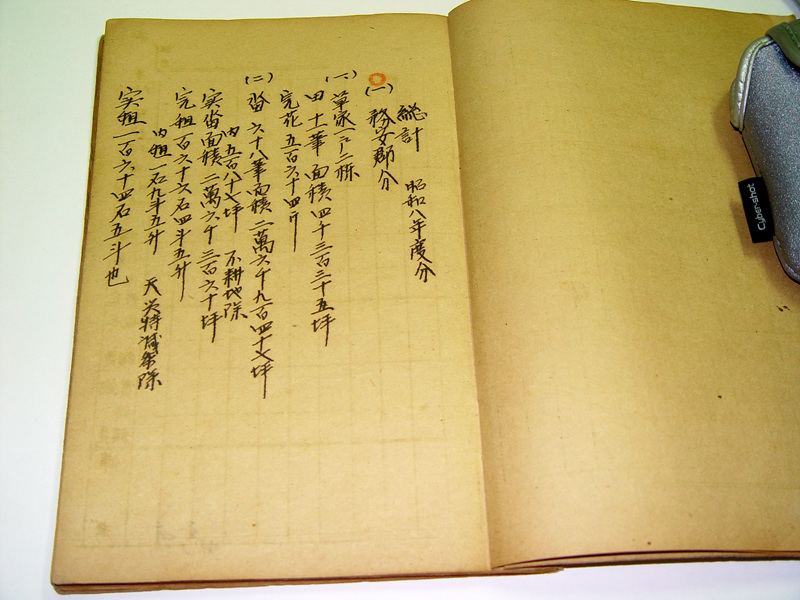 総計 昭和八年度分
(一) 務安郡分
(一) 草家
田 十筆 面積 四千三百三十五坪
完花 五百六十四斤
(二) 畓 六十八筆 面積 二萬六千九百四十七坪
内五百八十七坪 不耕地除
実畓面積 二萬六千三百六十坪
完租 一百六十六石四斗五升
内租 一石九斗五升 天災特減條除
実租 一百六十四石五斗也
Cyber-shot